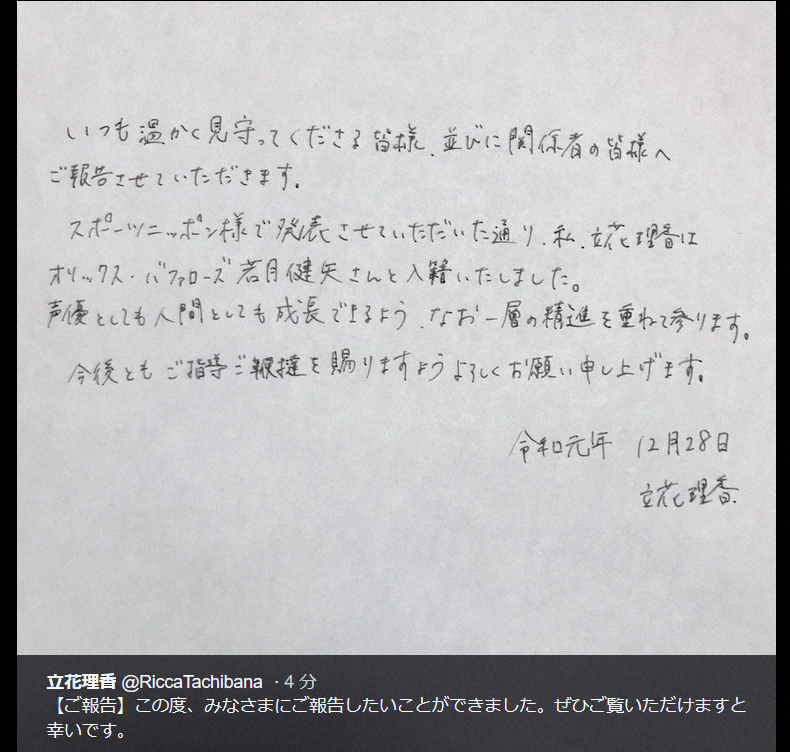 いつも温かく見守ってくださる皆様、並びに関係者の皆様へ
ご報告させていただきます。
スポーツニッポン様で発表させていただいた通り、私、立花理香は
オリックス・バファローズ若月健矢さんと入籍いたしました。
声優としても人間としても成長できるよう、なお一層の精進を重ねて参ります。
今後ともご指導ご鞭撻を賜りますようよろしくお願い申し上げます。
令和元年 12月28日
立花理香
立花理香 @RiccaTachibana ・4 分
【ご報告】この度、みなさまにご報告したいことができました。ぜひご覧いただけますと
幸いです。